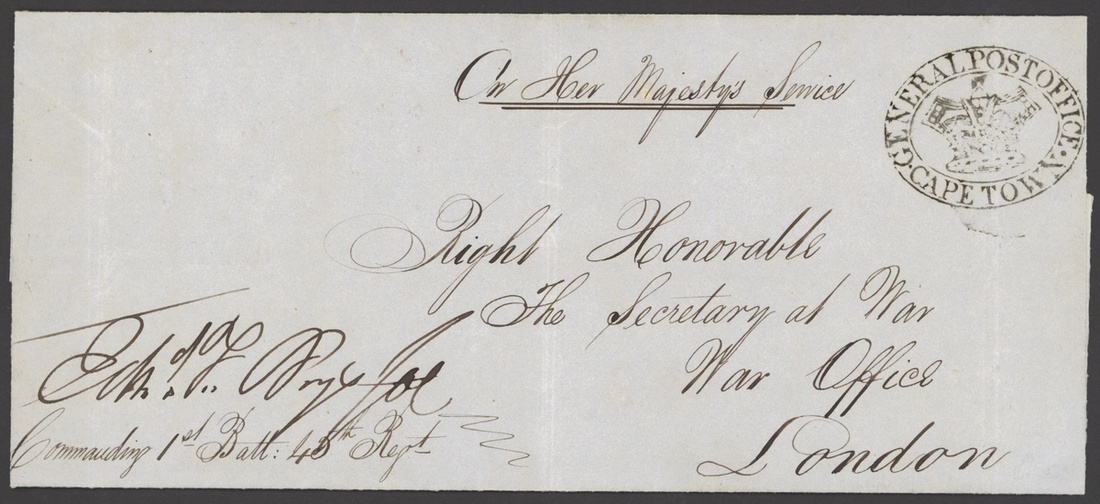 On Her Majesty's Service
GENERAL POST OFFICE · CAPE TOWN ·
Right Honorable
The Secretary at War
War Office
London
Commanding 1st Batt: 45th Regt